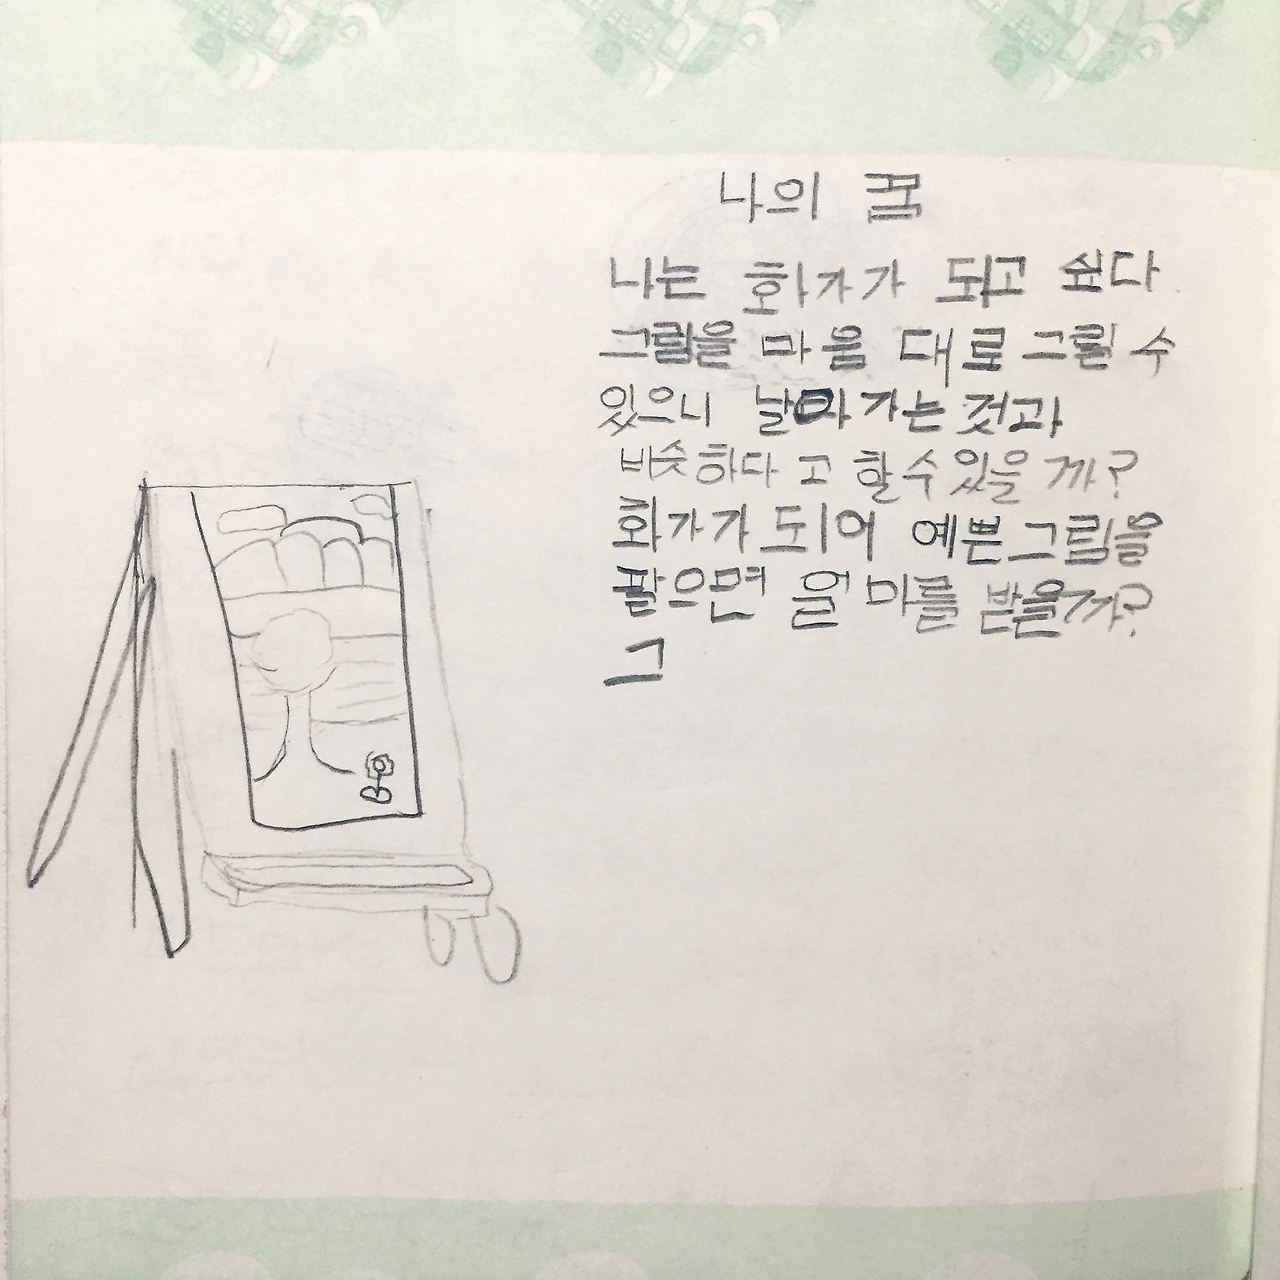 나의 꿈
나는 화가가 되고 싶다
그림을 마음 대로 그릴 수
있으니 날아가는 것과
비슷하다고 할 수 있을까?
화가가 되어 예쁜 그림을
팔으면 얼마를 받을까?
그